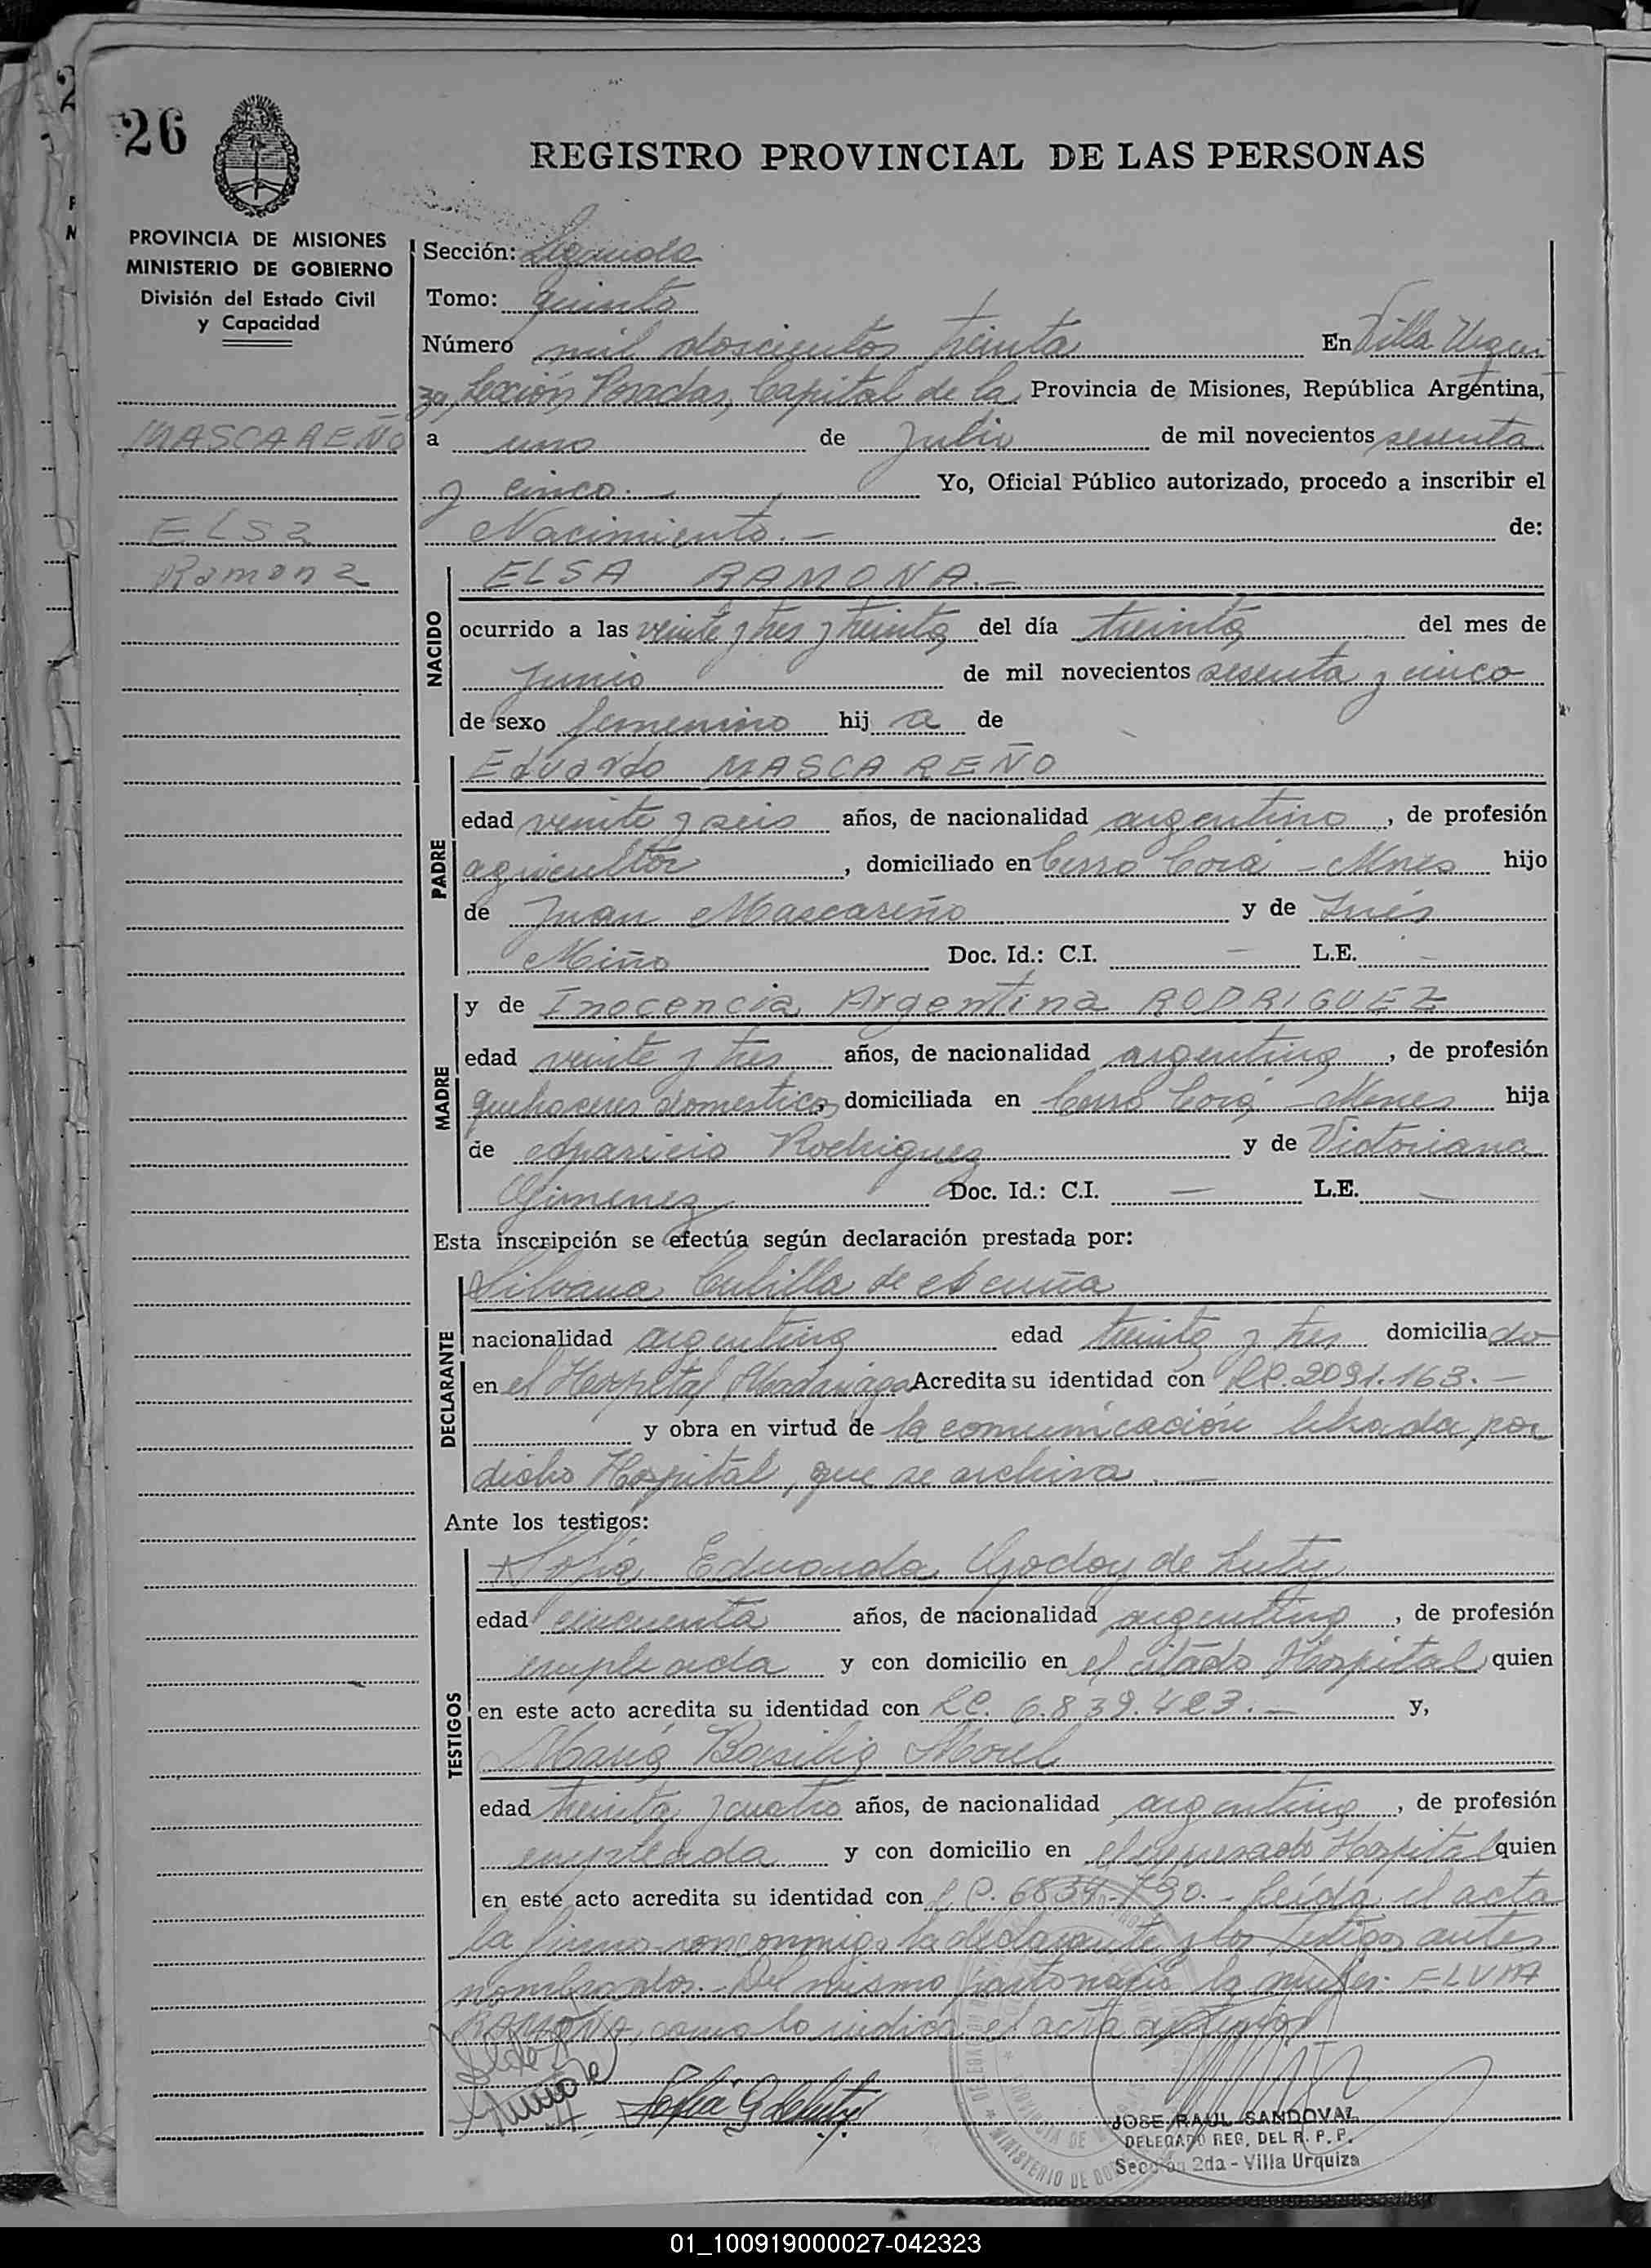 26
REGISTRO PROVINCIAL DE LAS PERSONAS
PROVINCIA DE MISIONES
MINISTERIO DE GOBIERNO
División del Estado Civil
y Capacidad
MASCAREÑO
ELSa
Ramona
Sección: Segunda
Tomo: quinto
Número mil doscientos treinta En Villa Urqui
za, Sección, Posadas, Capital de la Provincia de Misiones, República Argentina,
a uno de Julio de mil novecientos sesenta
y cinco.— Yo, Oficial Público autorizado, procedo a inscribir el
Nacimiento.— de:
NACIDO
ELSA RAMONA.—
ocurrido a las veinte y tres y treinta del día treinta del mes de
Junio de mil novecientos sesenta y cinco
de sexo femenino hij a de
PADRE
Eduardo MASCAREÑO
edad veinte y seis años, de nacionalidad argentino, de profesión
agricultor, domiciliado en Cerro Corá - Mnes hijo
de Juan Mascareño y de Inés
Miño Doc. Id.: C.I. — L.E. —
MADRE
y de Inocencia Argentina RODRIGUEZ
edad veinte y tres años, de nacionalidad argentina, de profesión
quehaceres domesticos domiciliada en Cerro Corá - Mnes hija
de Aparicio Rodriguez y de Victoriana
Gimenez Doc. Id.: C.I. — L.E. —
Esta inscripción se efectúa según declaración prestada por:
DECLARANTE
Silvana Cubilla de Acuña
nacionalidad argentina edad treinta y tres domiciliado
en el Hospital Madariaga Acredita su identidad con LC. 2091.163.—
y obra en virtud de la comunicación librada por
dicho Hospital, que se archiva.—
Ante los testigos:
TESTIGOS
Sofia Eduarda Godoy de Luty
edad cincuenta años, de nacionalidad argentina, de profesión
empleada y con domicilio en el citado Hospital quien
en este acto acredita su identidad con LC. 6.839.423.— y,
María Basilia Morel
edad treinta y cuatro años, de nacionalidad argentina, de profesión
empleada y con domicilio en el expresado Hospital quien
en este acto acredita su identidad con L.C. 6839.790.- Leída el acta
la firma con conmigo la declarante y los testigos antes
nombrados.- Del mismo parto nació la mujer: ELVIA
RAMONA, como lo indica el acta anterior
Sofia G de Luty
JOSE RAUL SANDOVAL
DELEGADO REG. DEL R. P. P.
Sección 2da - Villa Urquiza
MINISTERIO DE
01_100919000027-042323